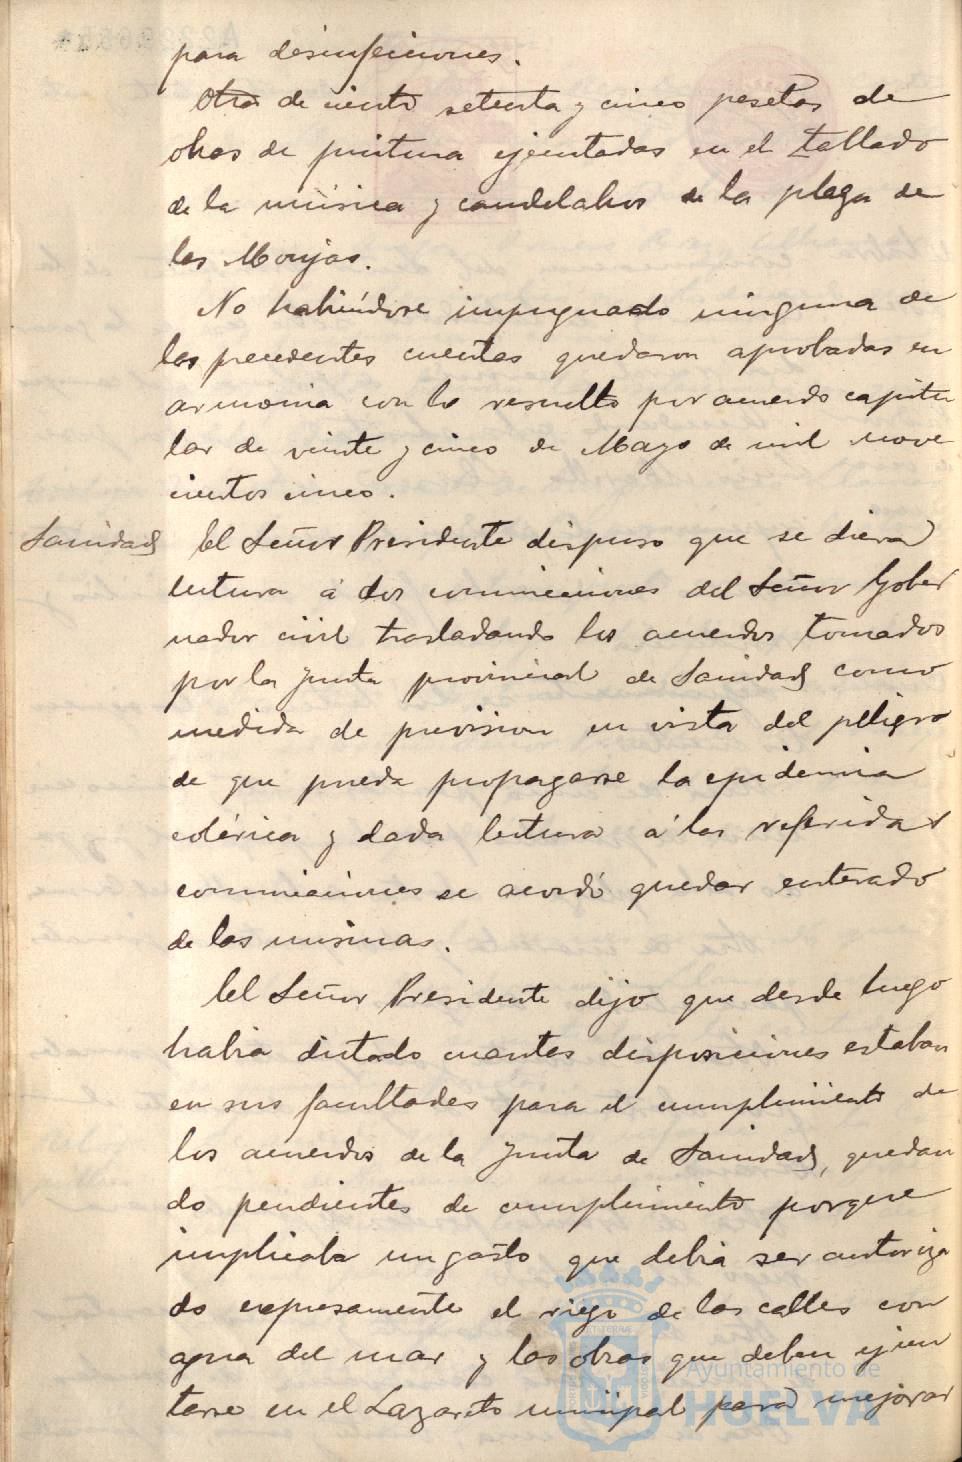 para desinfeciones.
Otra de ciento setenta y cinco pesetas de
obras de pintura ejecutadas en el tablado
de la música y candelabros de la plaza de
las Monjas.
No habiéndose impugnado ninguna de
las precedentes cuentas quedaron aprobadas en
armonia con lo resuelto por acuerdo capitu
lar de veinte y cinco de Mayo de mil nove
cientos cinco.
Sanidad
El Señor Presidente dispuso que se diera
lectura á dos comunicaciones del Señor Gober
nador civil trasladando los acuerdos tomados
por la Junta provincial de Sanidad como
medida de prevision en vista del peligro
de que pueda propagarse la epidemia
colérica y dada lectura á las referidas
comunicaciones se acordó quedar enterado
de las mismas.
El Señor Presidente dijo que desde luego
habia dictado cuantas disposiciones estaban
en sus facultades para el cumplimiento de
los acuerdos de la Junta de Sanidad, quedan
do pendientes de cumplimiento porque
implicaba un gasto que debia ser autoriza
do expresamente el riego de las calles con
agua del mar y las obras que deben ejecu
tarse en el Lazareto municipal para mejorar
Ayuntamiento de
HUELVA